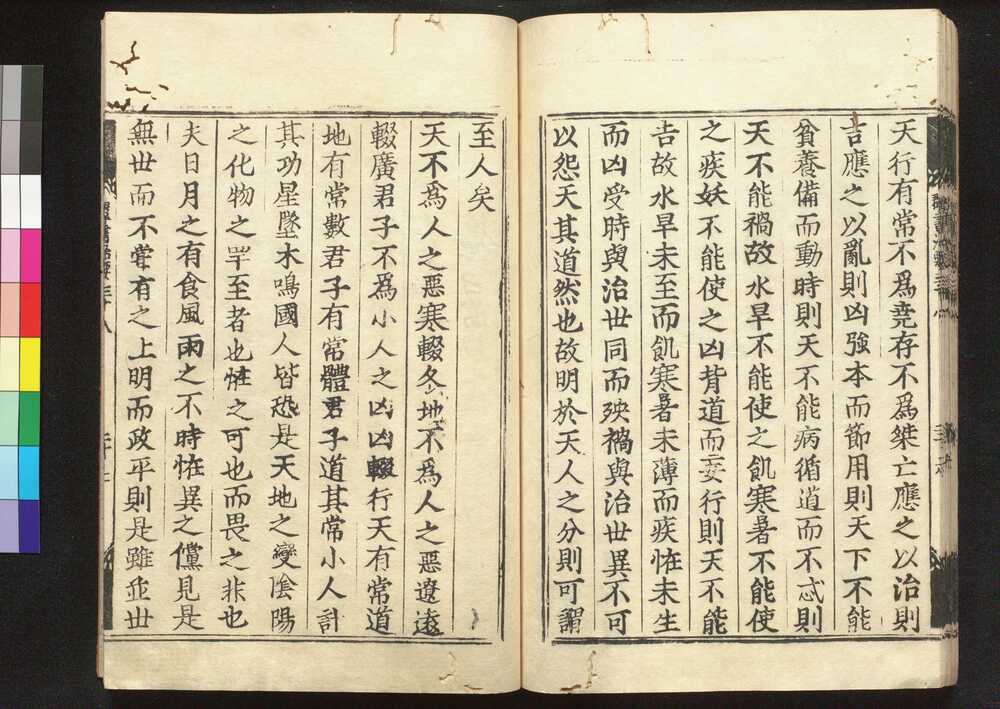 天行有常不爲堯存不爲桀亡應之以治則
吉應之以亂則凶強本而節用則天下不能
貧養備而動時則天不能病循道而不忒則
天不能禍故水旱不能使之飢寒暑不能使
之疾妖不能使之凶背道而妄行則天不能
吉故水旱未至而飢寒暑未薄而疾恠未生
而凶受時與治世同而殃禍與治世異不可
以怨天其道然也故明於天人之分則可謂
至人矣
天不爲人之惡寒輟冬地不爲人之惡遼遠
輟廣君子不爲小人之凶凶輟行天有常道
地有常數君子有常體君子道其常小人計
其功星墜木鳴國人皆恐是天地之變陰陽
之化物之罕至者也恠之可也而畏之非也
夫日月之有食風雨之不時恠異之儻見是
無世而不甞有之上明而政平則是雖並世